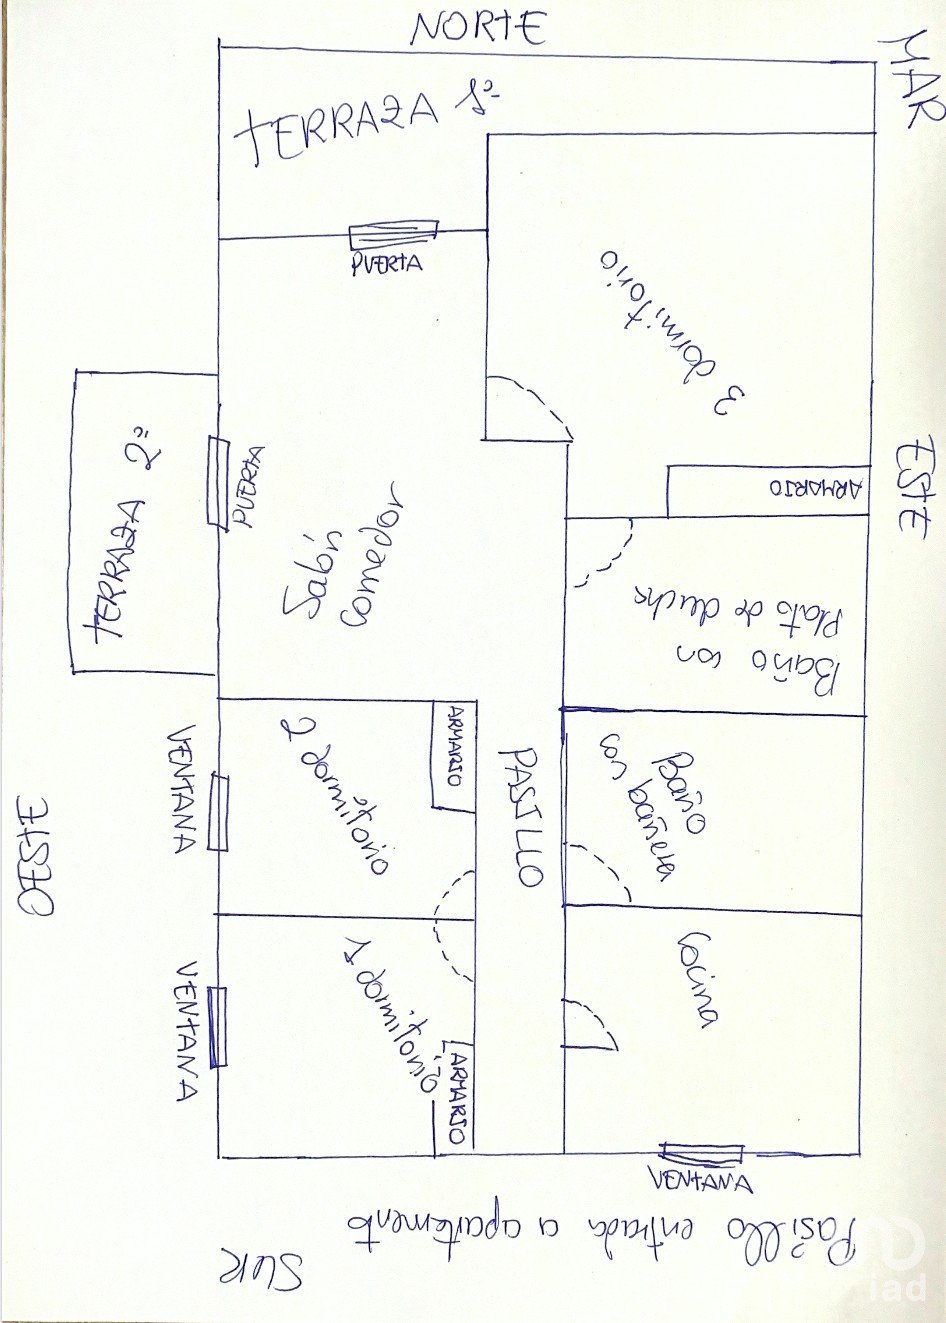 NORTE
MAR
TERRAZA 1ª
PUERTA
3 dormitorio
ARMARIO
ESTE
TERRAZA 2ª
PUERTA
Salón
comedor
Baño con
Plato de ducha
VENTANA
2 dormitorio
ARMARIO
PASILLO
Baño
con bañera
OESTE
VENTANA
1 dormitorio
ARMARIO
Cocina
VENTANA
Pasillo entrada a apartamento
SUR
iad